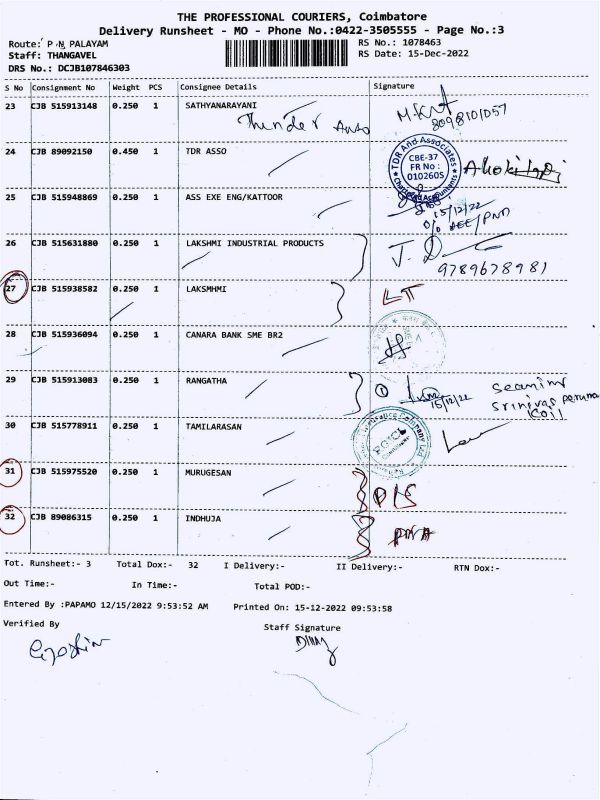 THE PROFESSIONAL COURIERS, Coimbatore
Delivery Runsheet - MO - Phone No.:0422-3505555 - Page No.:3
Route: P N PALAYAM
RS No.: 1078463
Staff: THANGAVEL
RS Date: 15-Dec-2022
DRS No.: DCJB107846303
S No Consignment No Weight PCS Consignee Details Signature
23 CJB 515913148 0.250 1 SATHYANARAYANI
Thunder Auto
8098101057
24 CJB 89092150 0.450 1 TDR ASSO
TDR And Associates
CBE-37
FR No :
010260S
Chartered Accountants
25 CJB 515948869 0.250 1 ASS EXE ENG/KATTOOR
15/12/22
O/o AEE/PNP
26 CJB 515631880 0.250 1 LAKSHMI INDUSTRIAL PRODUCTS
9789678981
27 CJB 515938582 0.250 1 LAKSMHMI
LT
28 CJB 515936094 0.250 1 CANARA BANK SME BR2
29 CJB 515913083 0.250 1 RANGATHA
1
15/12/22
Srinivas Peruma
Koil
30 CJB 515778911 0.250 1 TAMILARASAN
31 CJB 515975520 0.250 1 MURUGESAN
D/S
32 CJB 89086315 0.250 1 INDHUJA
Tot. Runsheet:- 3 Total Dox:- 32 I Delivery:- II Delivery:- RTN Dox:-
Out Time:- In Time:- Total POD:-
Entered By :PAPAMO 12/15/2022 9:53:52 AM Printed On: 15-12-2022 09:53:58
Verified By
Staff Signature